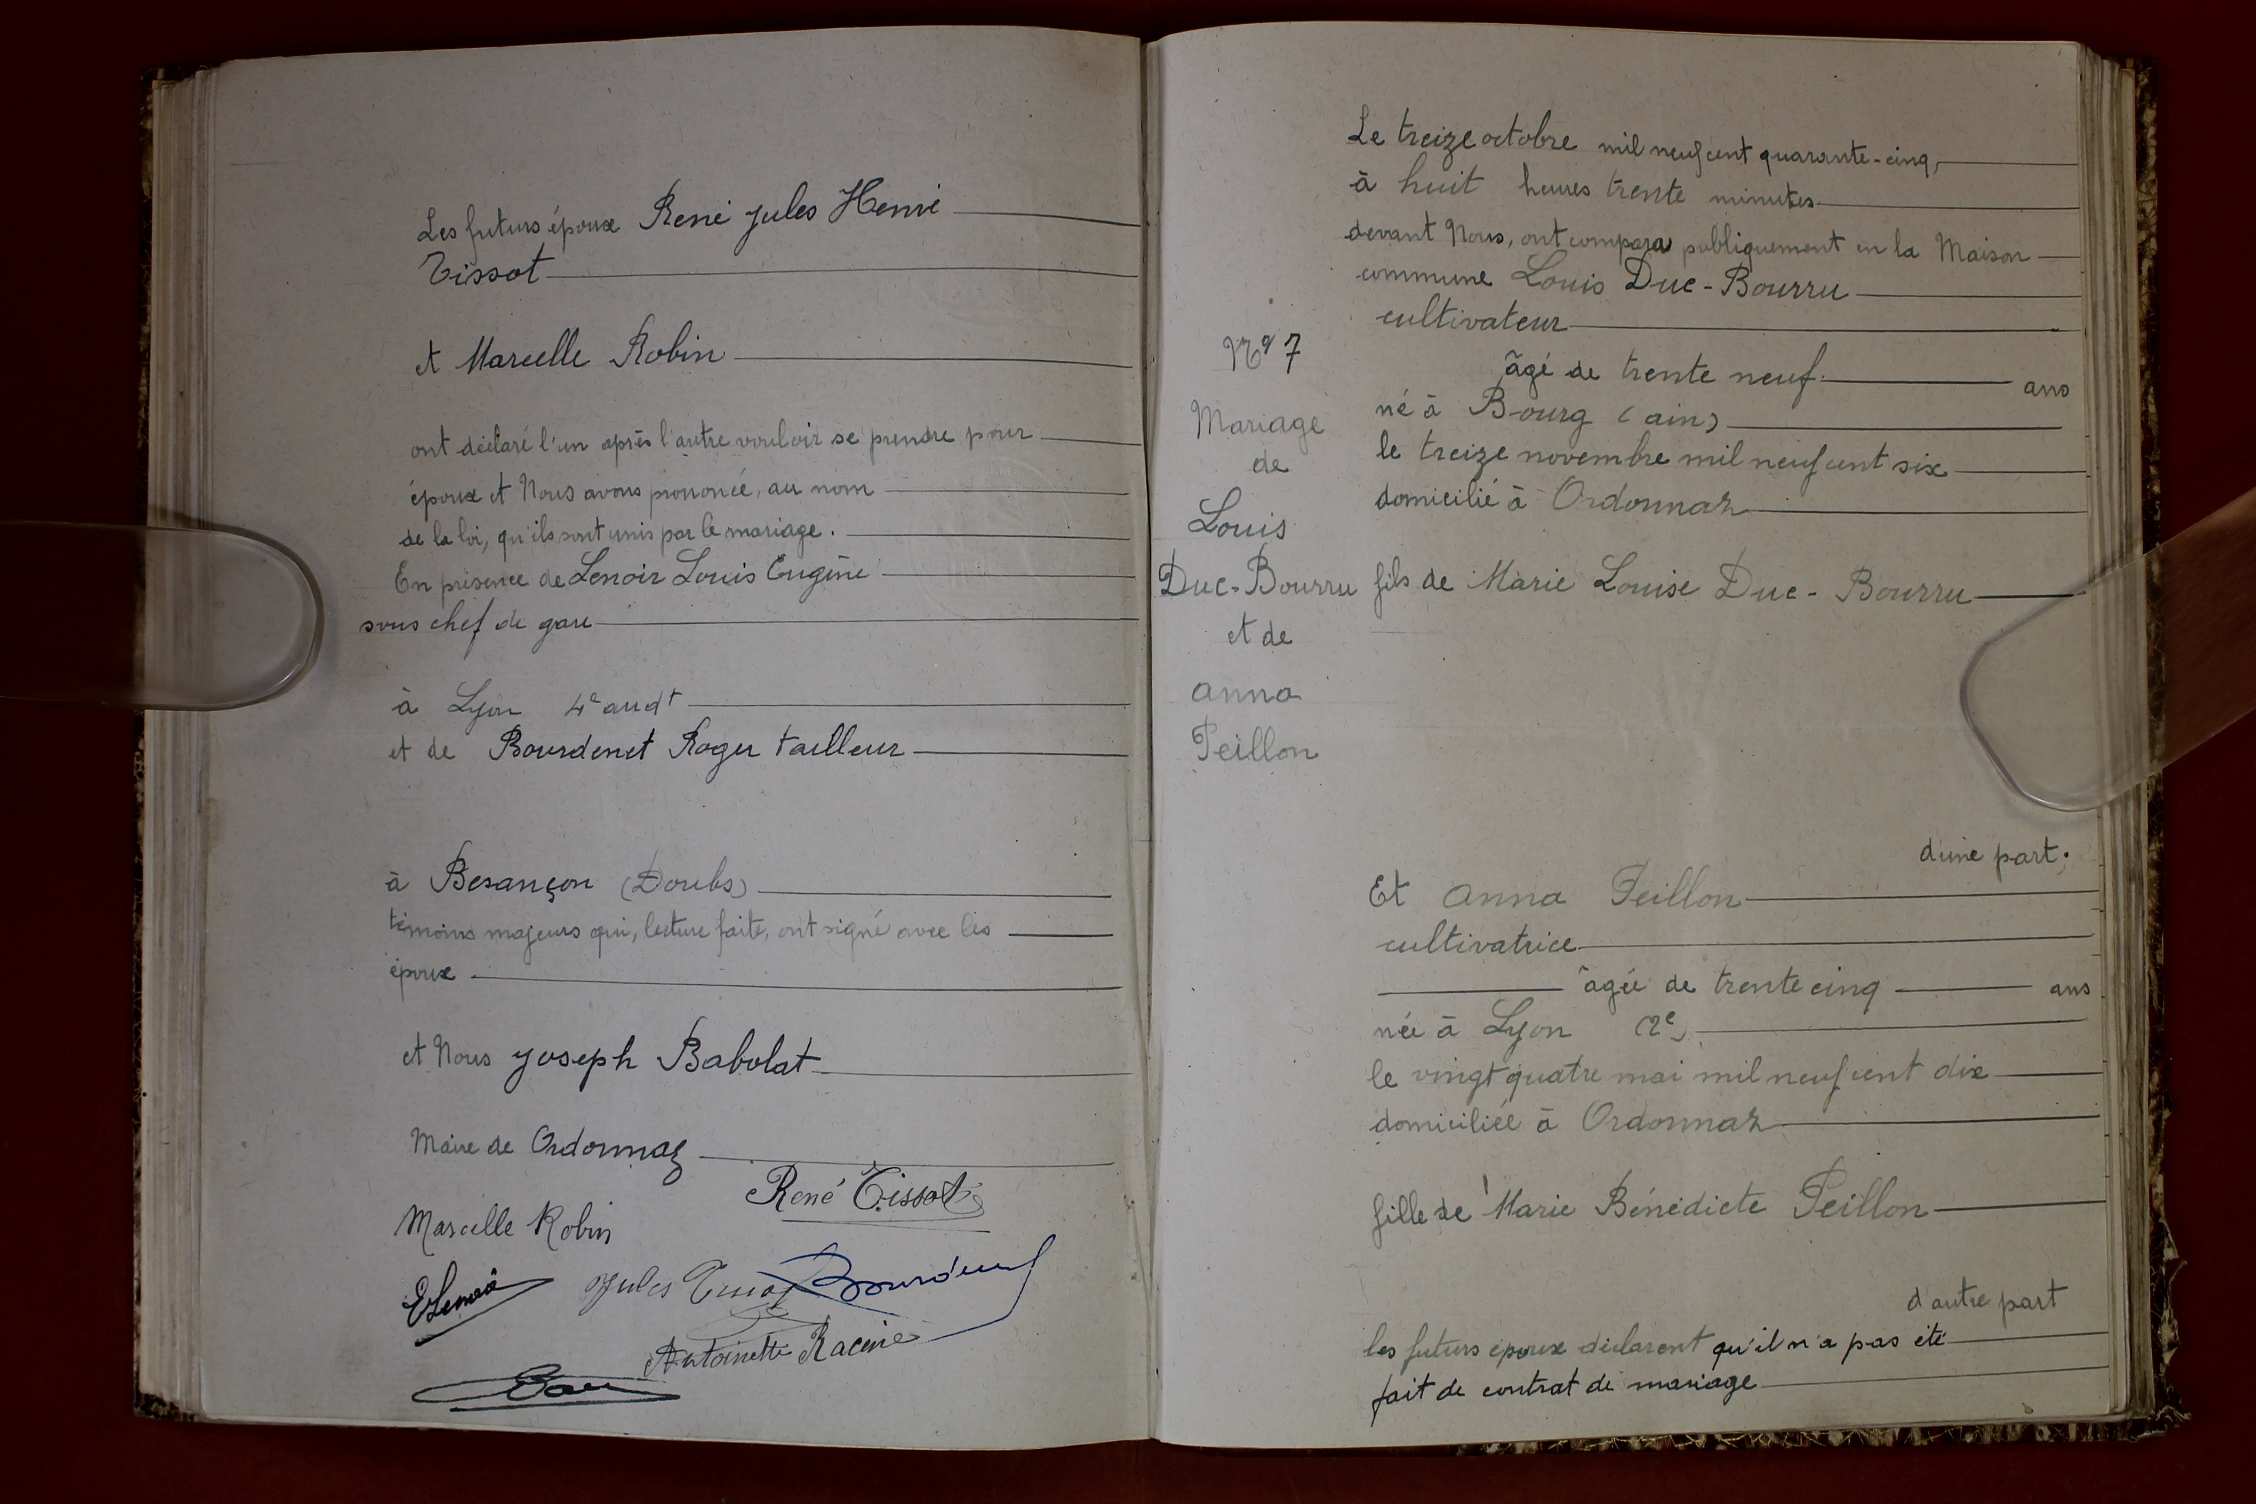 Les futurs époux René Jules Henri
Tissot
et Marcelle Robin
ont déclaré l'un après l'autre vouloir se prendre pour
époux et Nous avons prononcé, au nom
de la loi, qu'ils sont unis par le mariage.
En présence de Lenoir Louis Eugène
sous chef de gare
à Lyon 4e arrdt
et de Bourdenet Roger tailleur
à Besançon (Doubs)
témoins majeurs qui, lecture faite, ont signé avec les
époux
et Nous Joseph Babolat
Maire de Ordonnaz
René Tissot
Marcelle Robin
ELenoir
Jules Tissot
Antoinette Racine
Nº 7
Mariage
de
Louis
Duc-Bourru
et de
Anna
Peillon
Le treize octobre mil neuf cent quarante-cinq,
à huit heures trente minutes
devant Nous, ont comparu publiquement en la Maison
commune Louis Duc-Bourru
cultivateur
âgé de trente neuf ans
né à Bourg (Ain)
le treize novembre mil neuf cent six
domicilié à Ordonnaz
fils de Marie Louise Duc-Bourru
d'une part;
Et Anna Peillon
cultivatrice
âgée de trente cinq ans
née à Lyon (2e)
le vingt quatre mai mil neuf cent dix
domiciliée à Ordonnaz
fille de Marie Bénédicte Peillon
d'autre part
les futurs époux déclarent qu'il n'a pas été
fait de contrat de mariage